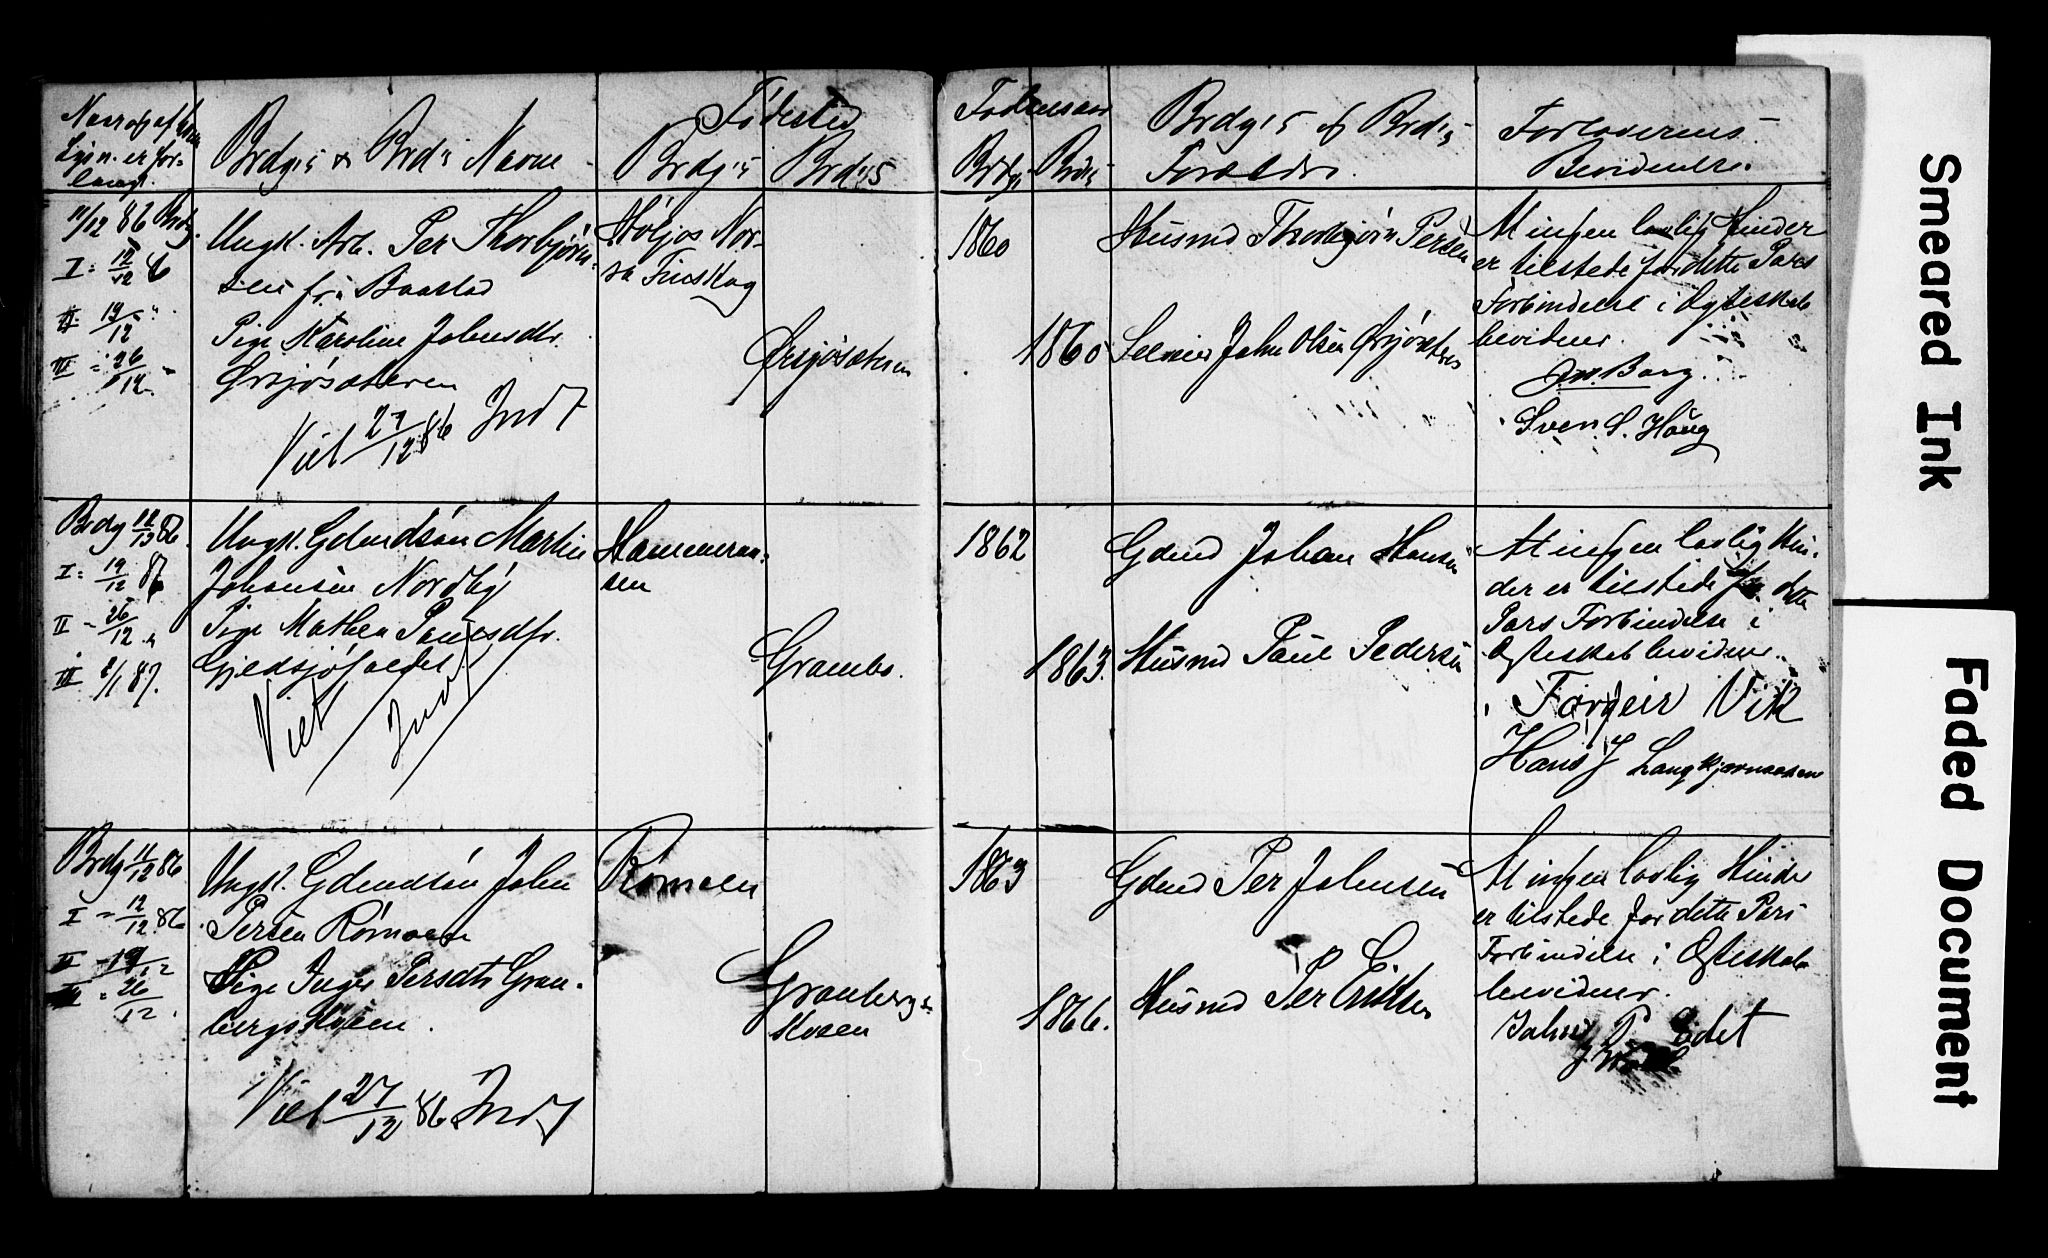 Naar og af hvem
Lysn. er for-
langt.
Brdg's & Brd's Navne
Fødested
Brdg's
Brd's
Fødselsaar
Brdg's
Brd's
Brdg's & Brd's
Forældre.
Forloverens
Bevidnelse.
11/12 86 Brdg.
I = 12/12 86
II = 19/12 "
III = 26/12 "
Ungk. Arb. Per Thorbjørn-
sen fra Baastad
Pige Karoline Johnsdtr.
Ørsjøsæteren
Viet 27/12 86 Indf
Høljos Nor-
ska Finskog
Ørsjøsæteren
1860
1860
Husmd Thorbjørn Persen
Selveier John Olsen Ørsjøsæteren
At ingen lovlig Hinder
er tilstede for dette Pars
Forbindelse i Ægteskab
bevidner.
Berg
Sven S. Haug
Brdg 12/12 86.
I = 19/12 86
II = 26/12 "
III 2/1 87.
Ungk. Gdmdsøn Martin
Johansen Nordby
Pige Mathea Paulsdtr.
Gjedsjøfaldet
Viet
Indf
Hammeraa-
sen
Grambo.
1862
1863.
Gdmd Johan Hansen
Husmd Paul Pedersen
At ingen lovlig Hin-
der er tilstede for dette
Pars Forbindelse i
Ægteskab bevidner.
Torgeir Vik
Hans J Langkjærnaasen
Brdg 11/12 86
I = 12/12 86
II = 19/12
III = 26/12.
Ungk. Gdmdsøn John
Persen Rømoen
Pige Inger Persdtr Gran-
bergsmoen.
Viet 27/12 86 Indf
Rømoen
Granbergs-
moen
1863
1866.
Gdmd Per Johnsen
Husmd Per Eriksen
At ingen lovlig Hinder
er tilstede for dette Pars
Forbindelse i Ægteskab
bevidner.
John P. Ødet
Smeared Ink
Faded Document